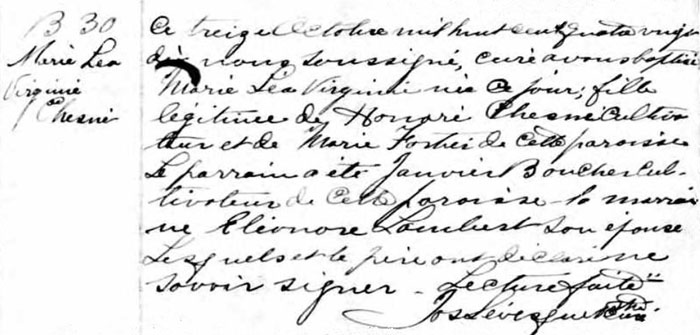 B 30
Marie Lea
Virginie
Chesné
Ce treize Octobre mil huit cent quatre vingt
dix nous soussigné, curé avons baptisé
Marie Lea Virginie née ce jour, fille
légitime de Honoré Chesné cultiva
teur et de Marie Fortier de cette paroisse
Le parrain a été Janvier Boucher cul-
tivateur de cette paroisse la marrai
ne Eléonore Lambert son épouse
Lesquels et le père ont déclaré ne
savoir signer - Lecture faite
Jos Lévesque Ptre Curé